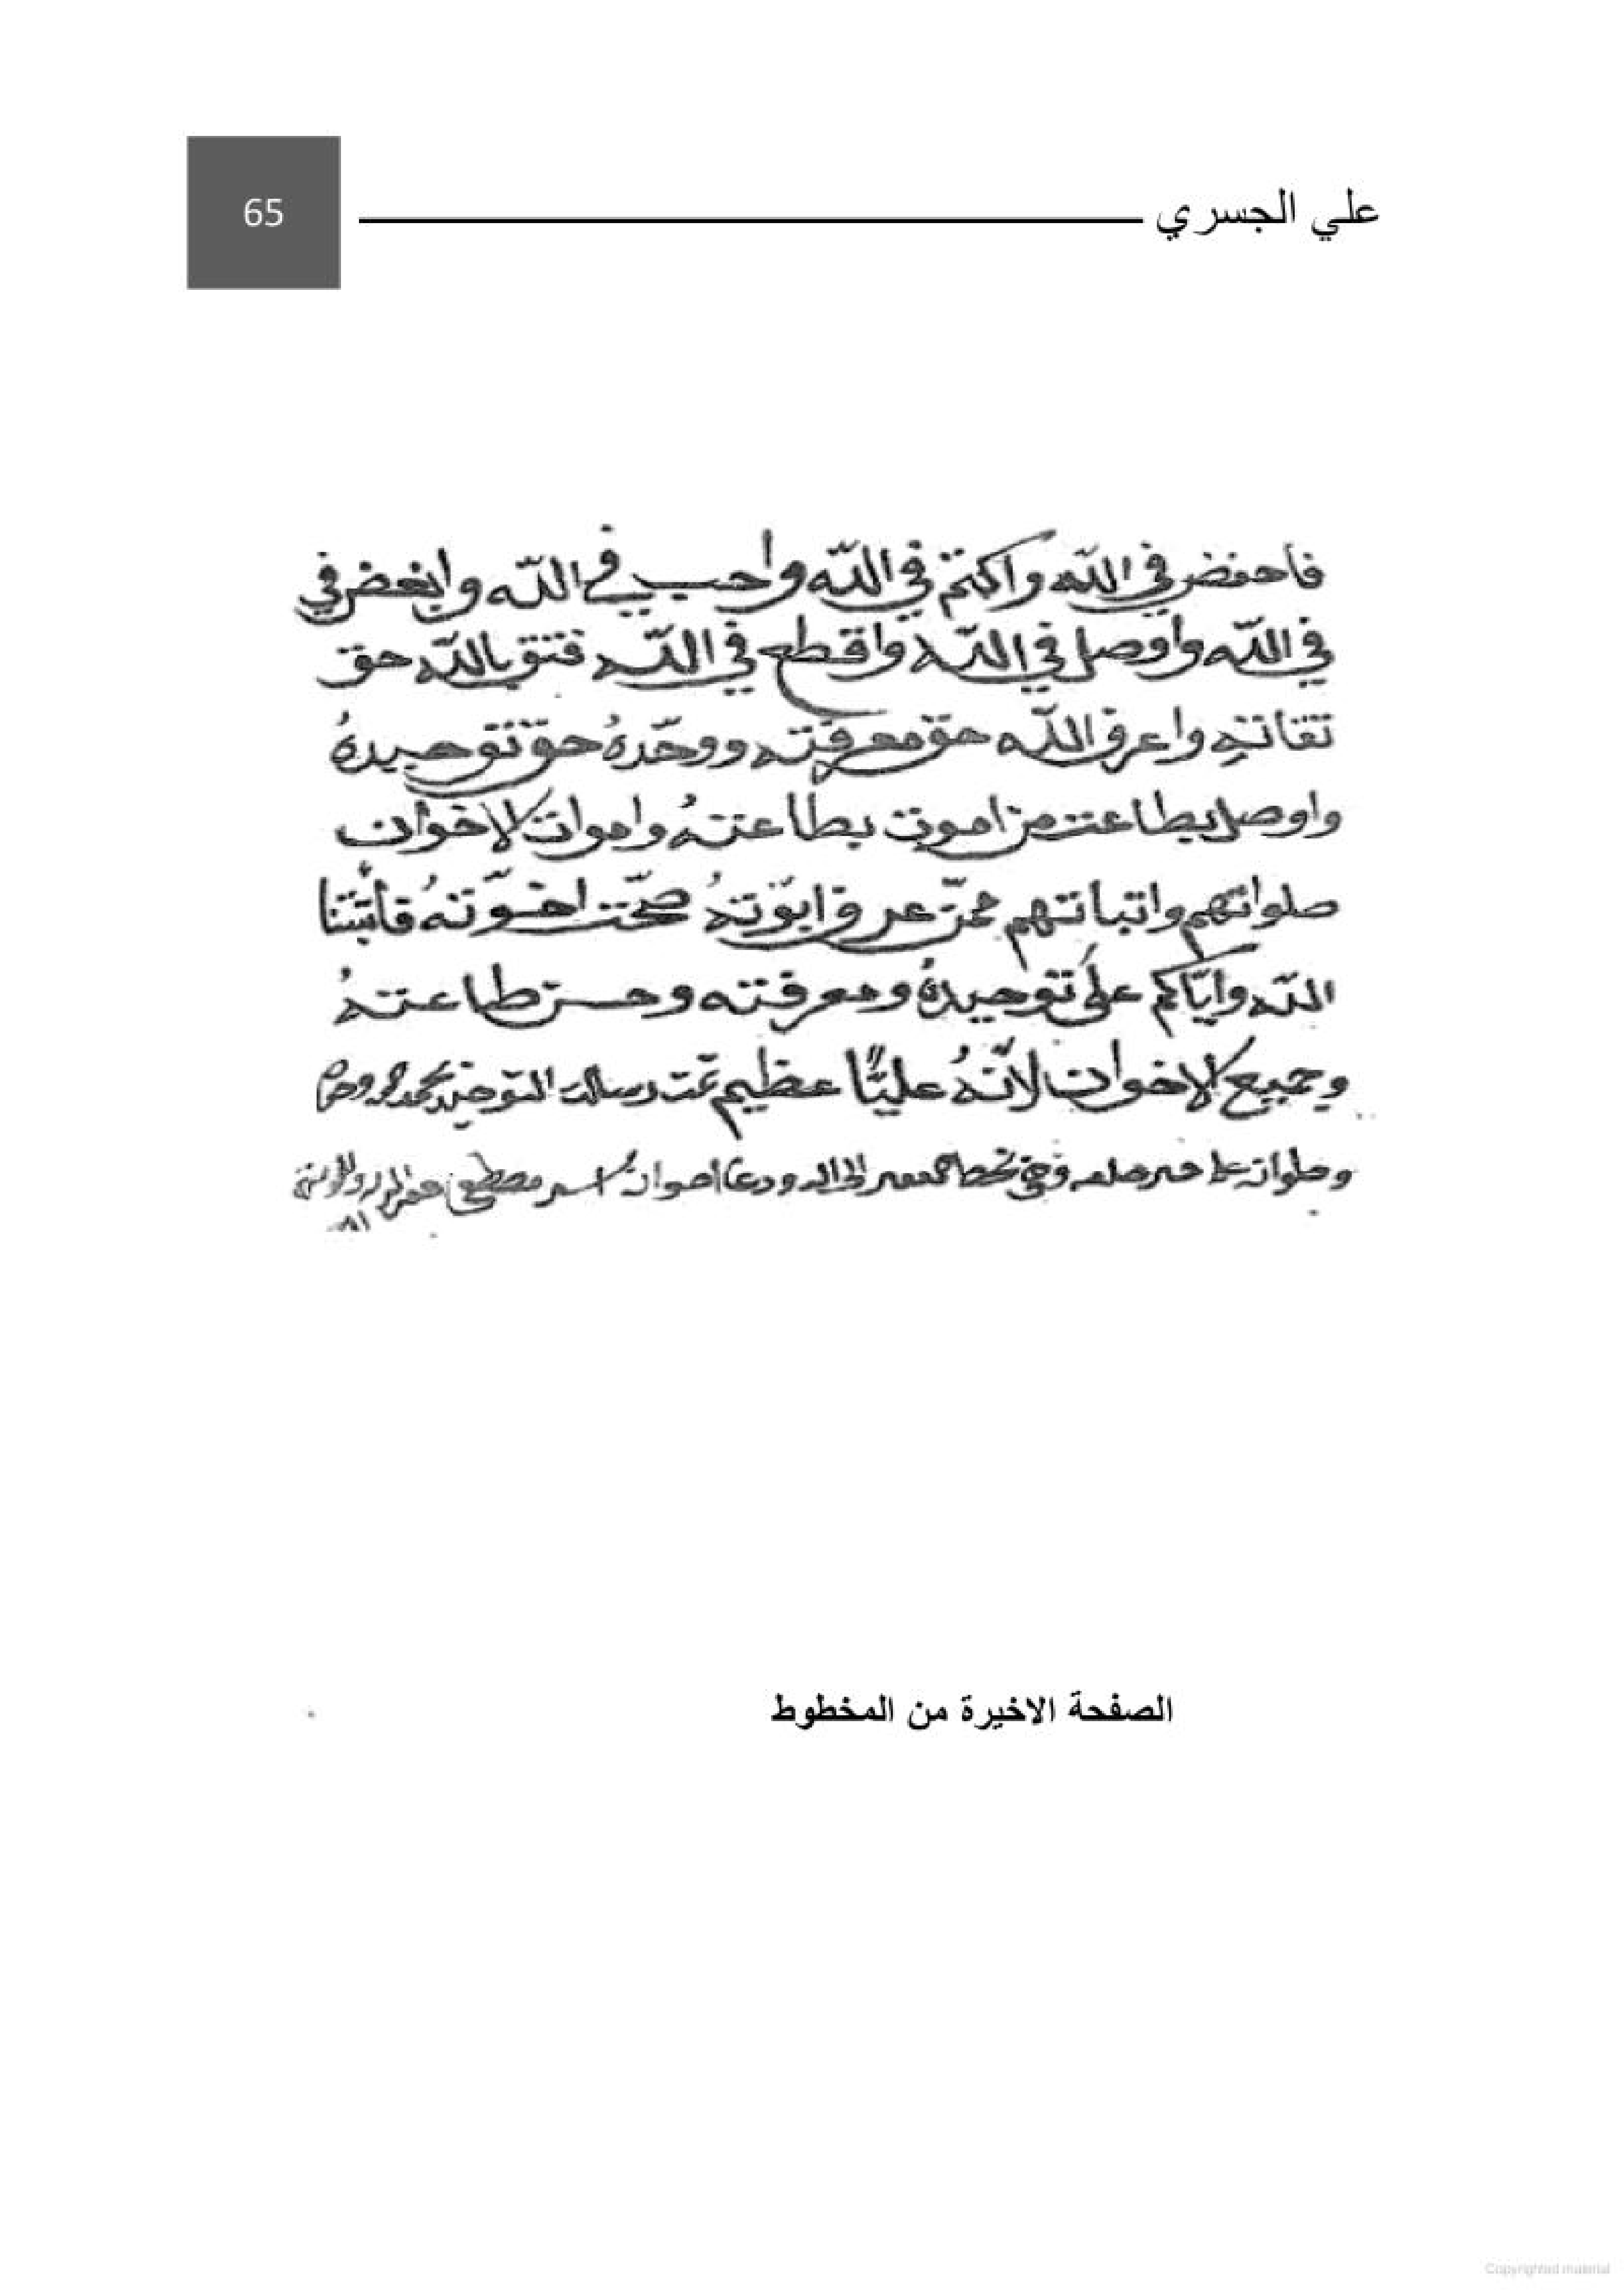 علي الجسري
65
فاحفض في الله واكتم في الله واحب في الله وابغض في
في الله واوصل في الله واقطع في الله فتق بالله حق
تقاته واعرف الله حق معرفته ووحّدهُ حق توحيدهُ
واوصل بطاعته من اموت بطاعتهُ واموات الاخوان
صلواتهم واتباتهم ممّن عرف ابوّتهُ صحّت اخوّتهُ فاتبتنا
الله وايّاكم على توحيدهُ ومعرفته وحسن طاعتهُ
وجميع الاخوان لانّهُ عليًّا عظيم تمّت رسالت التوحيد بحمد
وصلواته على
الصفحة الاخيرة من المخطوط
Copyrighted material